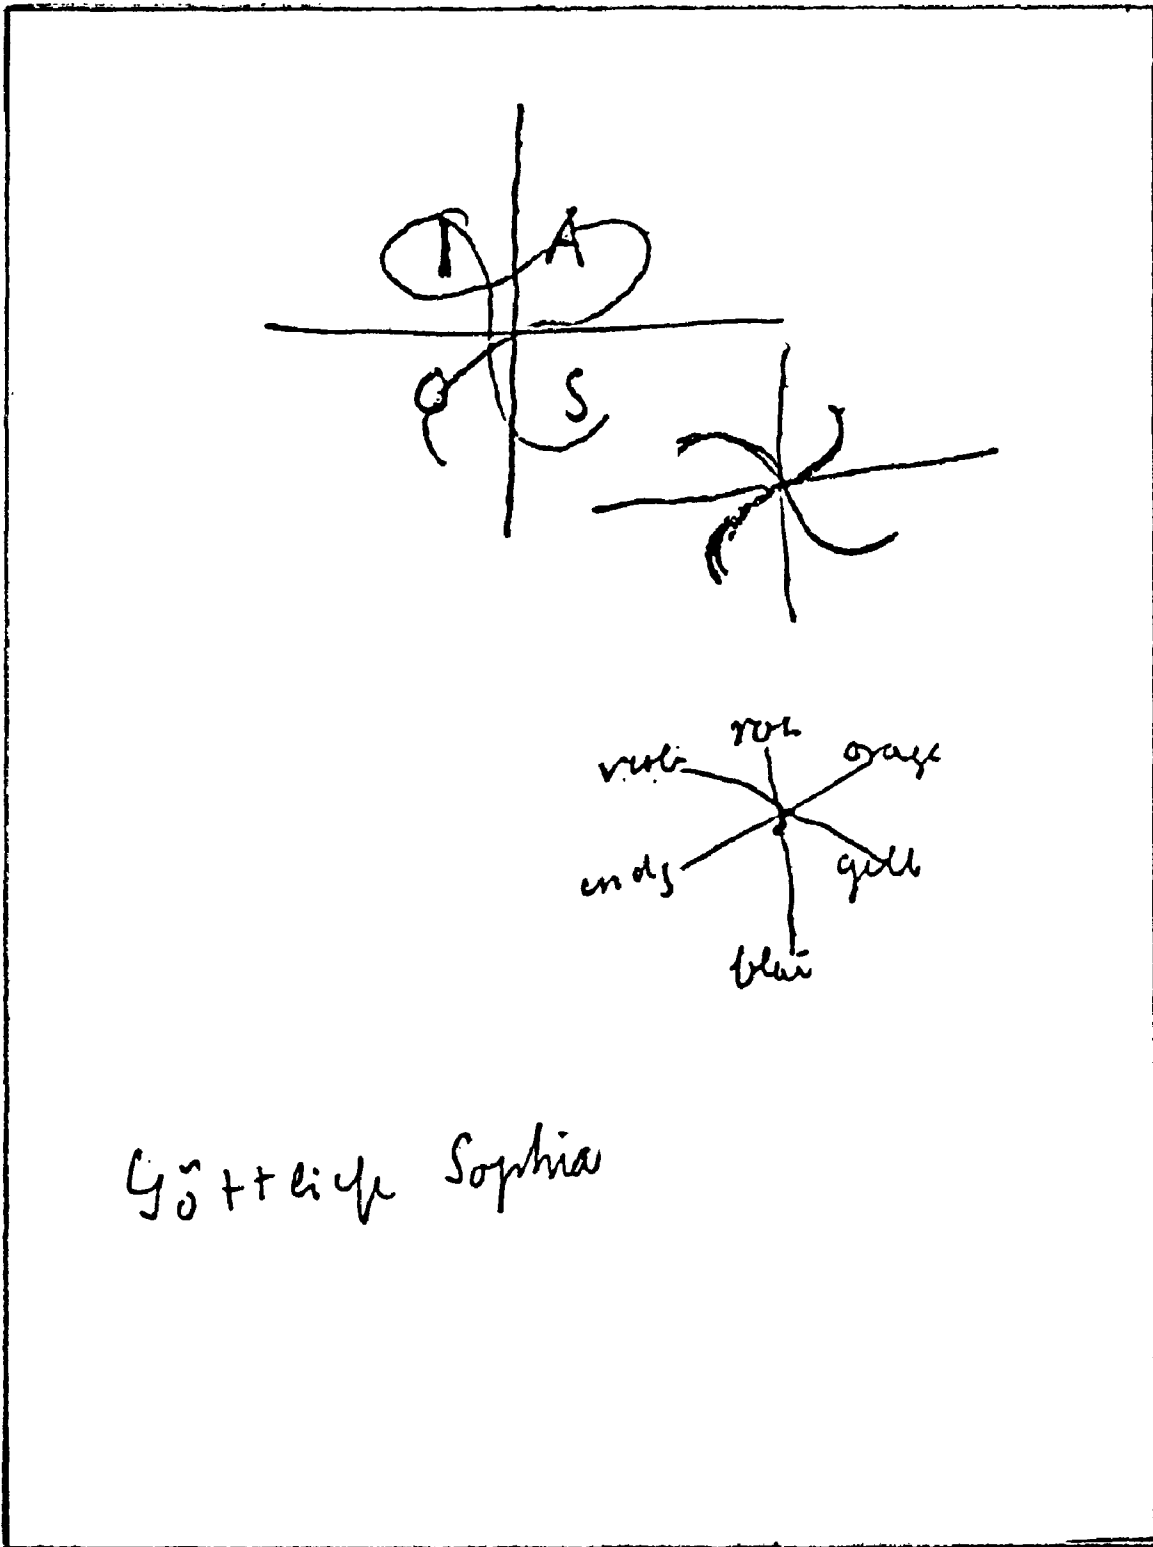 I A
O S
rot
viol. orage
indg gelb
blau
Göttliche Sophia